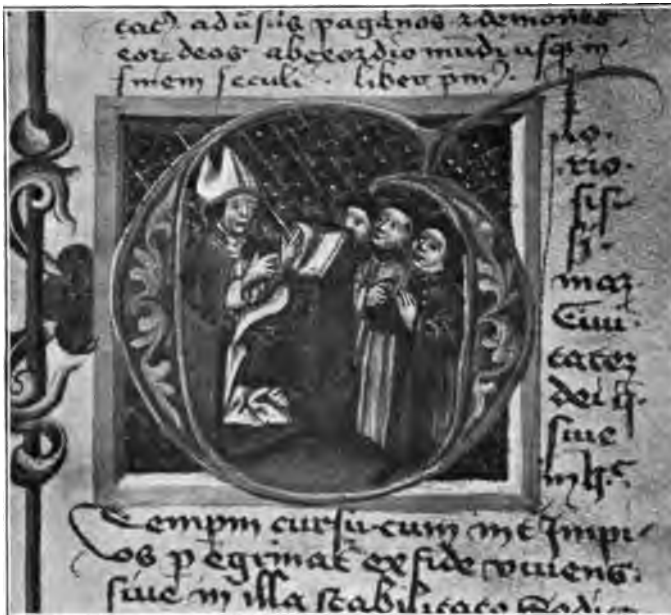 adūsus paganos ⁊ demones
eoꝝ deos ab exordio mūdi usqꝫ in
finem seculi. liber pm̄ꝰ
rio.
sis-
si.
Ciui-
tateꝫ
dei
siue
in
temꝑm cursu. cum int̄ Impi-
os ꝑegrinat᷑ ex fide viuens.
siue in illa stabilitate